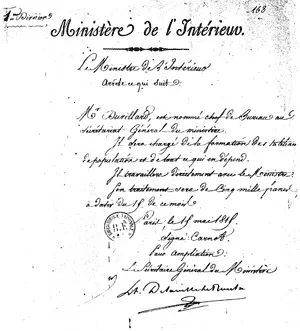 1re Division
168
Ministère de l'Intérieur.
Le Ministre de l'Intérieur
Arrête ce qui suit.
Mr Duvillard, est nommé chef de Bureau au
Secrétariat Général du ministère.
Il sera chargé de la formation des tables
de population et de tout ce qui en dépend.
Il travaillera directement avec le Ministre.
Son traitement sera de Cinq mille francs
à dater du 15 de ce mois.
Paris, le 15 mai 1815.
Signé: Carnot.
Pour ampliation:
Le Secrétaire Général du Ministère